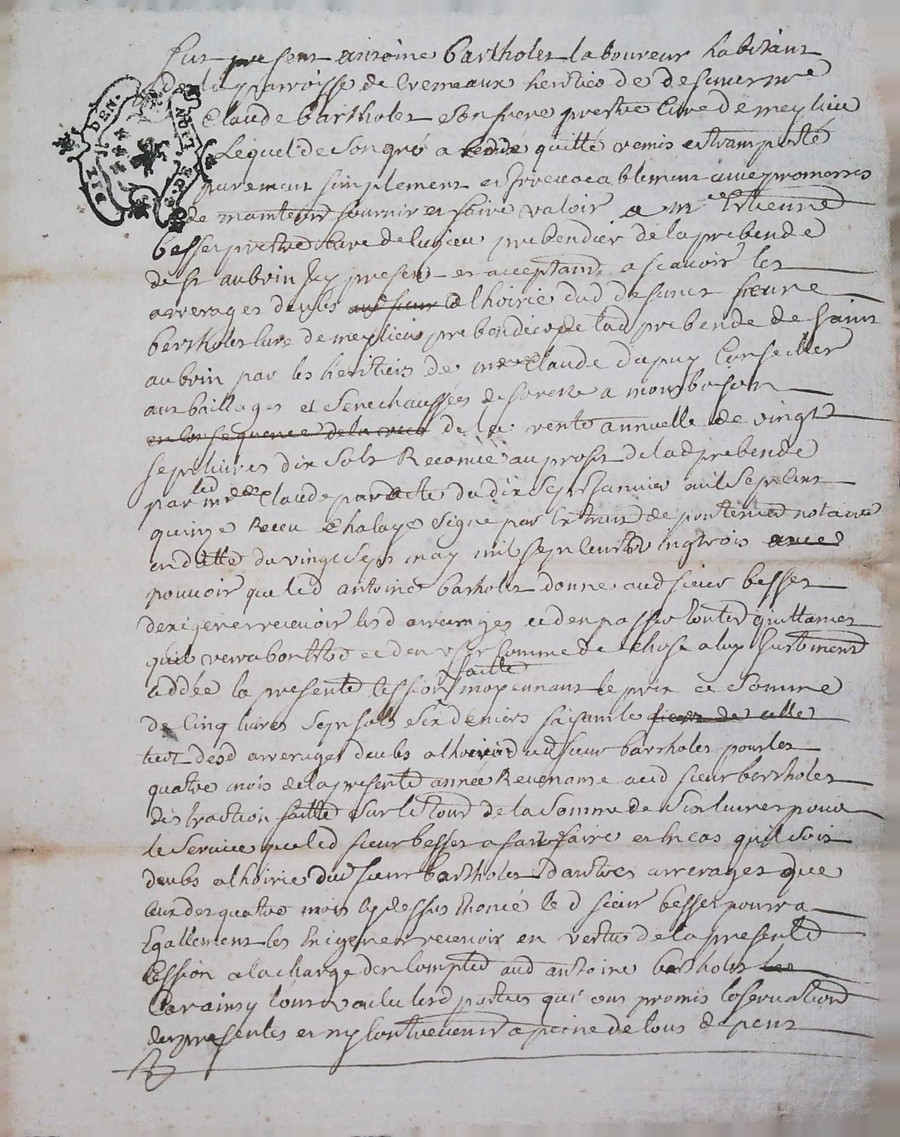 Fut present antoine bartholet laboureur habitant
de la parroisse de Cremeaux heritier de deffunct mre
Claude bartholet son frere prestre Curé de meylieu
Lequel de son gré a cedé quitté remis et transporté
purement simplement et irrevocablement avec promesses
de maintenir fournir et faire valoir a mre Estienne
besset prestre Curé de lupieu prebendier de la prebende
de st aubrin icy present et acceptant a scavoir les
arrerages deubs aud sieur a lhoirie dud deffunct sieur
bartholet Curé de meylieu prebendier de lad prebende de saint
aubrin par les heritiers de mre Claude dupuy Conseiller
aux baillages et senechaussées de forest a montbrison
en Consequence de la de la rente annuelle de vingt
sept livres dix sols Reconnue au profit de lad prebende
par led mre Claude par acte du dix sept janvier mil sept cent
quinze Receu Chalaye signé par Extrait de notaire
en datte du vingt sept may mil sept cent vingt trois avec
pouvoir que led antoine bartholet donne aud sieur besset
dexiger et recevoir lesd arrerages et den passer toutes quittances
quil verra bon et den user Comme de chose a luy
cedée la presente Cession faitte moyennant le prix et somme
de Cinq livres sept sols six deniers faisant le
desd arrerages deubs a lhoirie dud sieur bartholet pour les
quatre mois de la presente année Revenant aud sieur bartholet
distraction faitte sur le tout de la somme de six livres pour
le service que led sieur besset a fait faire et en cas quil soit
deubs a lhoirie dud sieur bartholet dautres arrerages que
ceux des quatre mois cy dessus enoncé led sieur besset pourra
Egallement les Exiger et recevoir en vertus de la presente
Cession a la charge den Compter aud antoine bartholet
Car ainsy lont voulu lesd parties qui ont promis lobservation
des presentes et ny Contrevenir a peine de tous depens